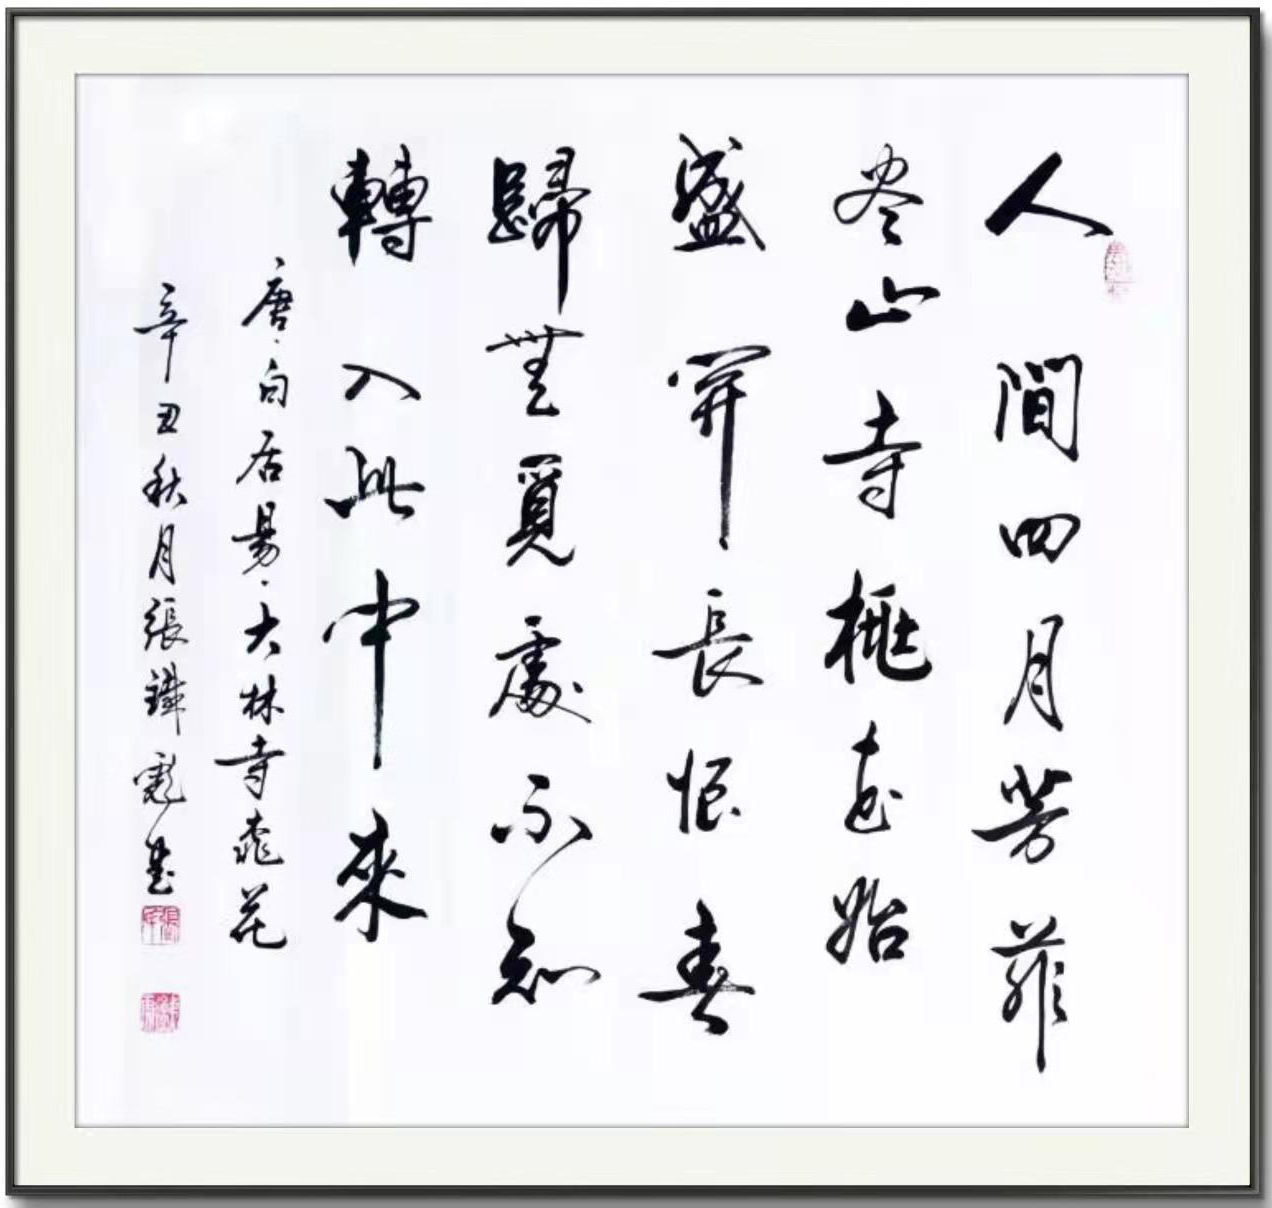 人間四月芳菲
尽山寺桃花始
盛開長恨春
歸無覓處不知
轉入此中來
唐·白居易·大林寺桃花
辛丑秋月張彪書